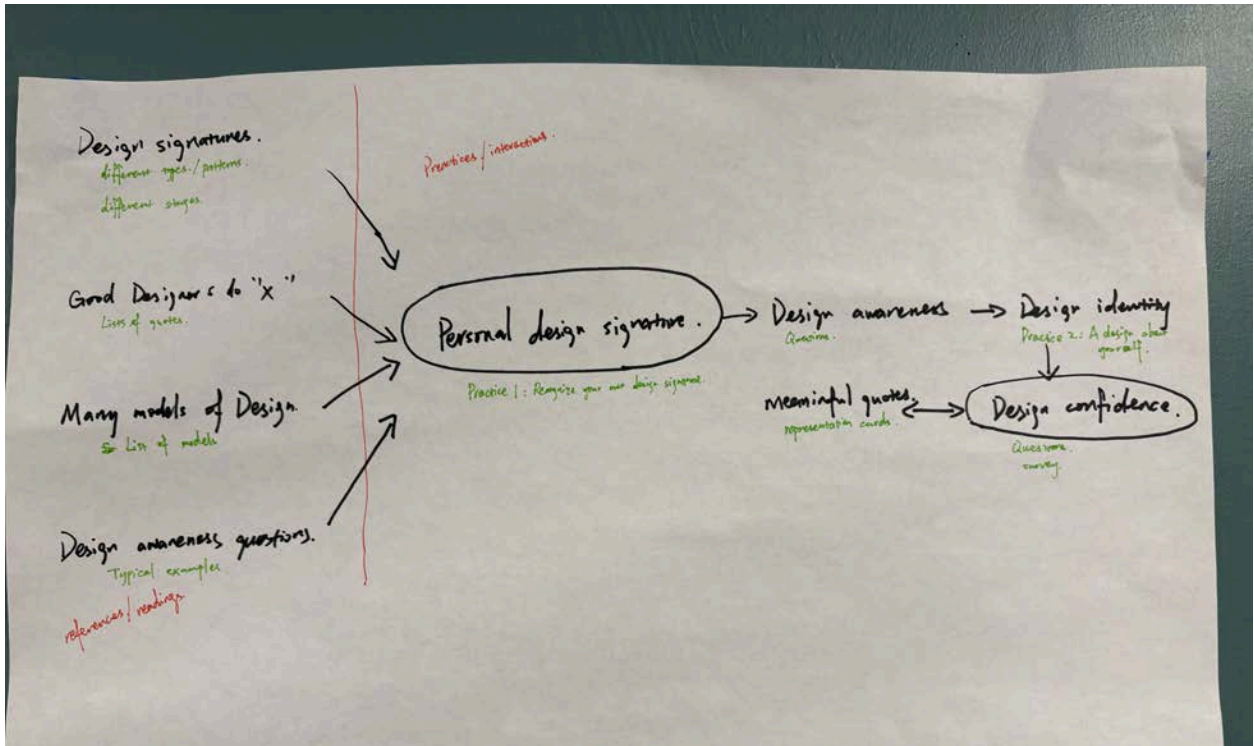 Design signatures.
different types/patterns.
different stages
Good Designers do "X"
Lists of quotes.
Many models of Design
List of models
Design awareness questions.
Typical examples
references/readings
Practices/interactions.
Personal design signature.
Practice 1: Recognize your own design signature.
Design awareness
Questions.
Design identity
Practice 2: A design about
yourself.
meaningful quotes.
representation cards.
Design confidence.
Questions
survey.